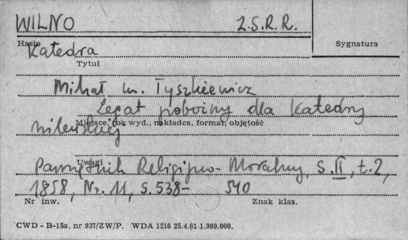 WILNO Z.S.R.R.
Hasło
Katedra
Sygnatura
Tytuł
Michał hr. Tyszkiewicz
Legat pobożny dla Katedry
Miejsce, rok wyd., nakładca, format, objętość
wileńskiej
Uwagi
Pamiętnik Religijno-Moralny, S.II, t.2,
1858, Nr. 11, s. 538-540
Nr inw. Znak klas.
CWD - B-15a, nr 937/ZW/P. WDA 1216 25.4.61 1.389.000.